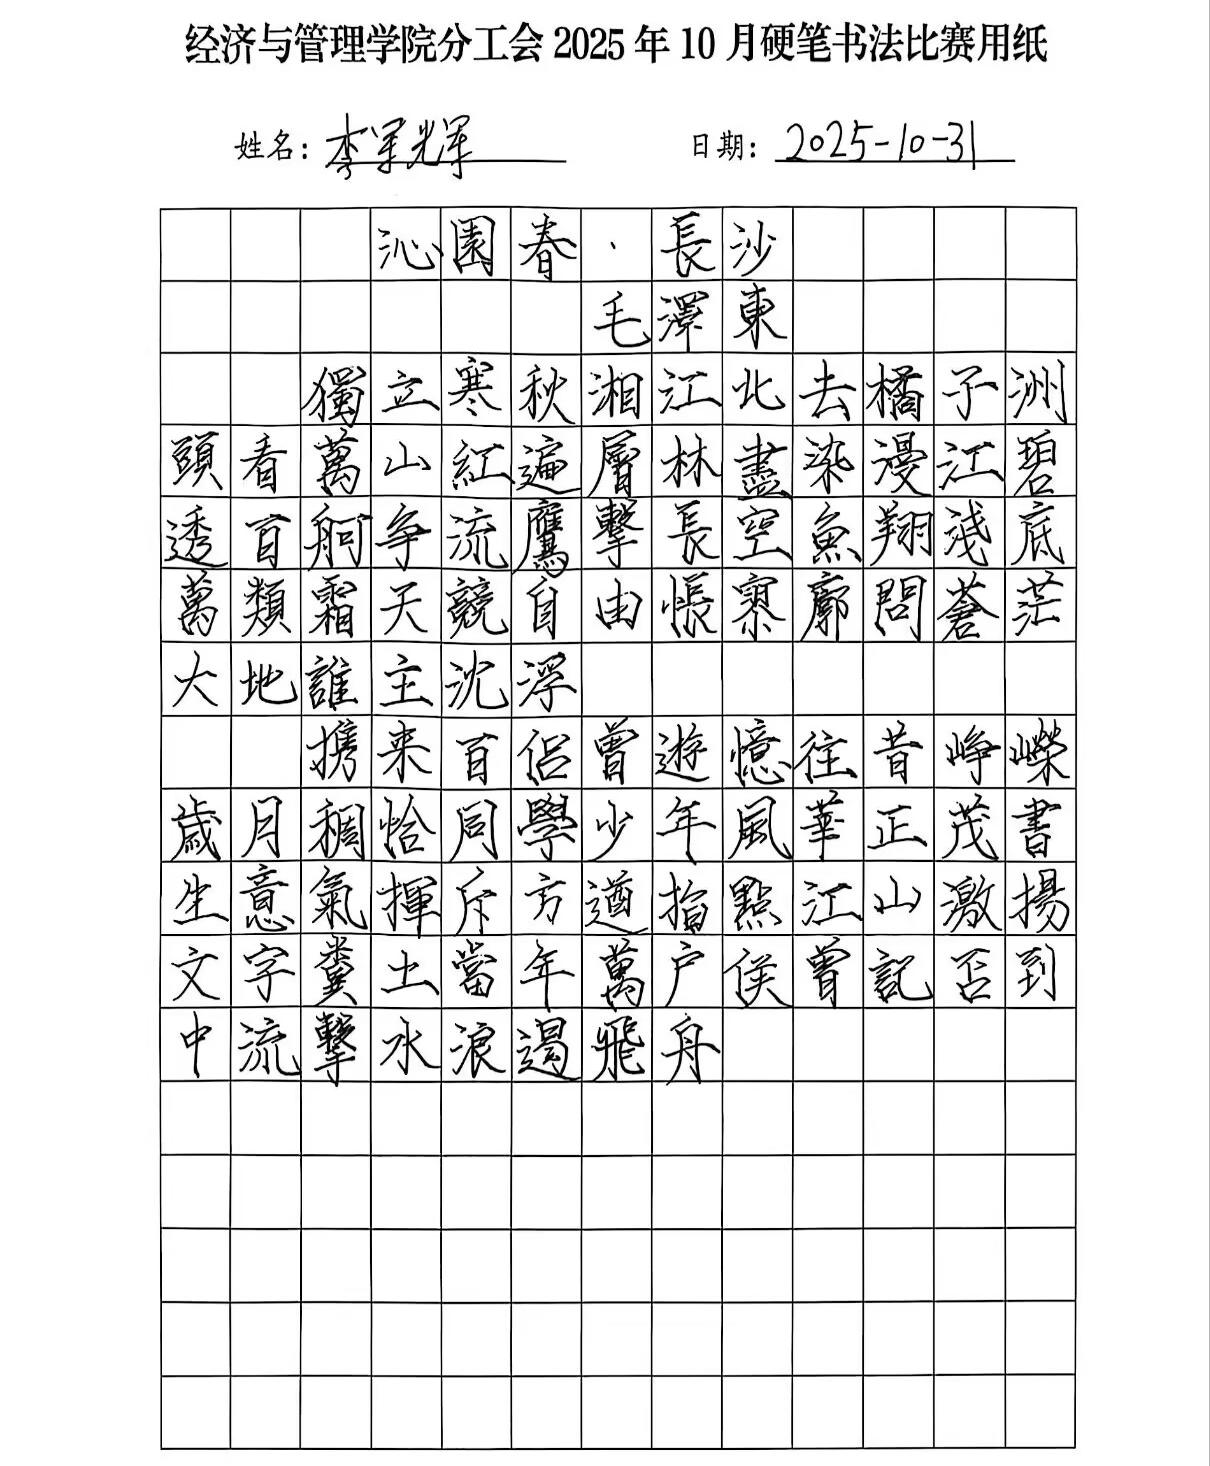 经济与管理学院分工会2025年10月硬笔书法比赛用纸
姓名：李军辉 日期：2025-10-31
沁園春·長沙
毛澤東
獨立寒秋湘江北去橘子洲
頭看萬山紅遍層林盡染漫江碧
透百舸争流鷹擊長空魚翔淺底
萬類霜天競自由悵寥廓問蒼茫
大地誰主沈浮
携来百侣曾遊憶往昔崢嶸
歲月稠恰同學少年風華正茂書
生意氣揮斥方遒指點江山激揚
文字糞土當年萬户侯曾記否到
中流擊水浪遏飛舟